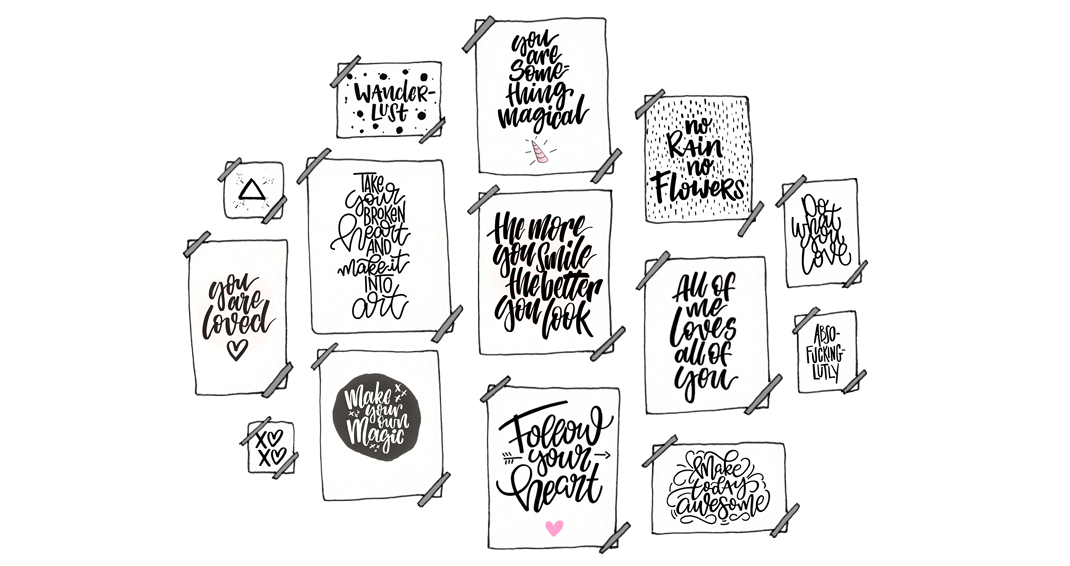 WAnder-
Lust
you
are
Some-
thing
magical
no
RAin
no
Flowers
TAKE
your
BROKEN
heart
AND
make it
INTO
art
the more
you smile
the better
you look
Do
what
you
love
you
are
loved
All of
me
loves
all of
you
ABSO-
FUCKING-
LUTLY
Make
your
own
Magic
Follow
your
heart
XO
XO
Make
today
awesome